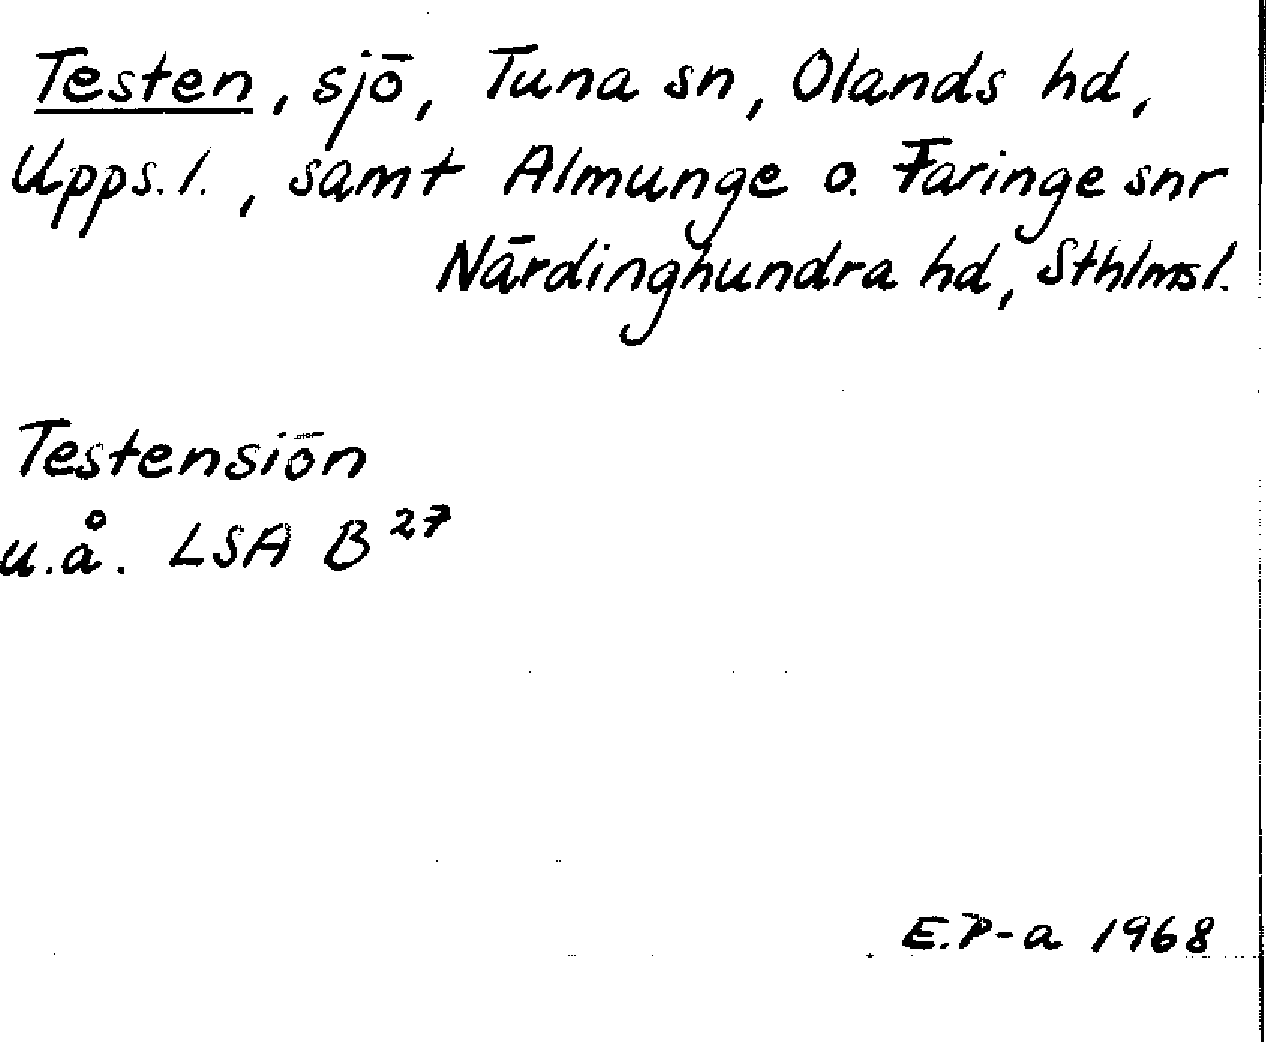 Testen, sjö, Tuna sn, Olands hd,
Upps. l., samt Almunge o. Faringe snr
Närdinghundra hd, Sthlmsl.
Testensiön
u.å. LSA B 27
E.P-a 1968